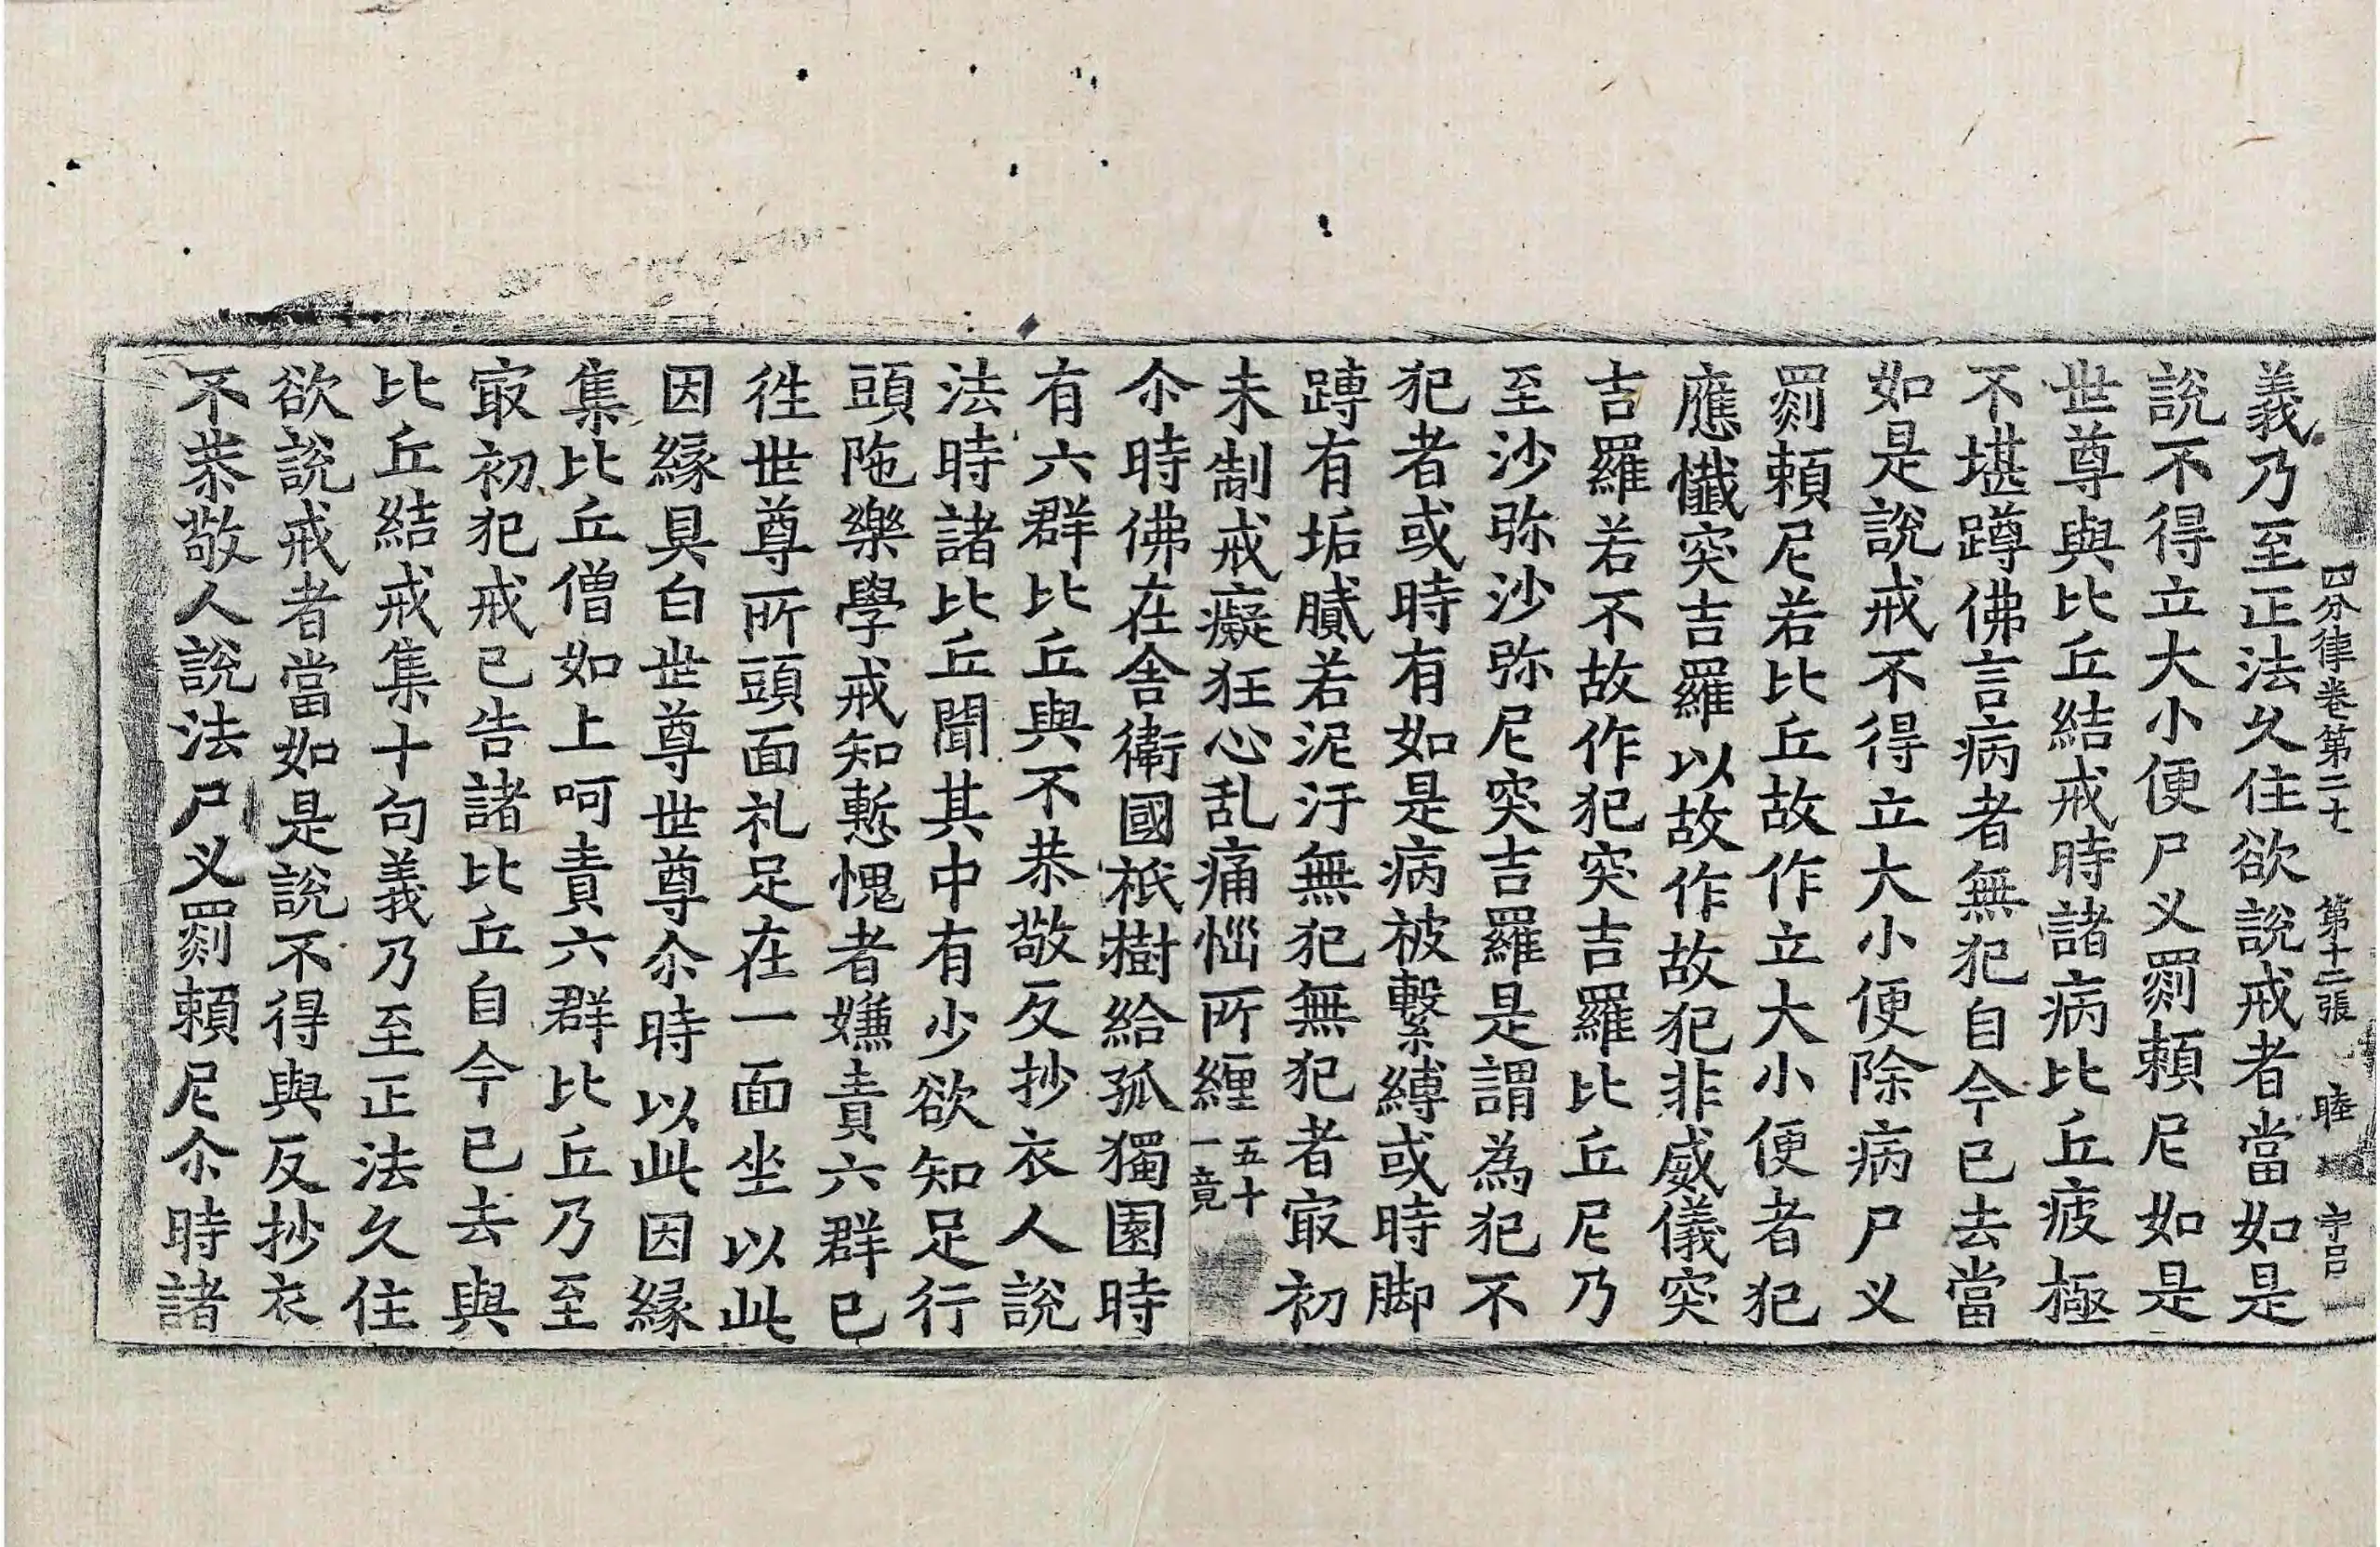 四分律卷第二十 第十二張 睦 守呂
義乃至正法久住欲說戒者當如是
說不得立大小便尸叉罽頼尼如是
世尊與比丘結戒時諸病比丘疲極
不堪蹲佛言病者無犯自今已去當
如是說戒不得立大小便除病尸叉
罽頼尼若比丘故作立大小便者犯
應懺突吉羅以故作故犯非威儀突
吉羅若不故作犯突吉羅比丘尼乃
至沙弥沙弥尼突吉羅是謂為犯不
犯者或時有如是病被繫縛或時脚
䏝有垢膩若泥汙無犯無犯者㝡初
未制戒癡狂心乱痛惱所纏五十一竟
尒時佛在舍衛國祇樹給孤獨園時
有六群比丘與不恭敬反抄衣人說
法時諸比丘聞其中有少欲知足行
頭陁樂學戒知慙愧者嫌責六群已
徃世尊所頭面礼足在一面坐以此
因縁具白世尊世尊尒時以此因縁
集比丘僧如上呵責六群比丘乃至
㝡初犯戒已告諸比丘自今已去與
比丘結戒集十句義乃至正法久住
欲說戒者當如是說不得與反抄衣
不恭敬人說法尸叉罽頼尼尒時諸